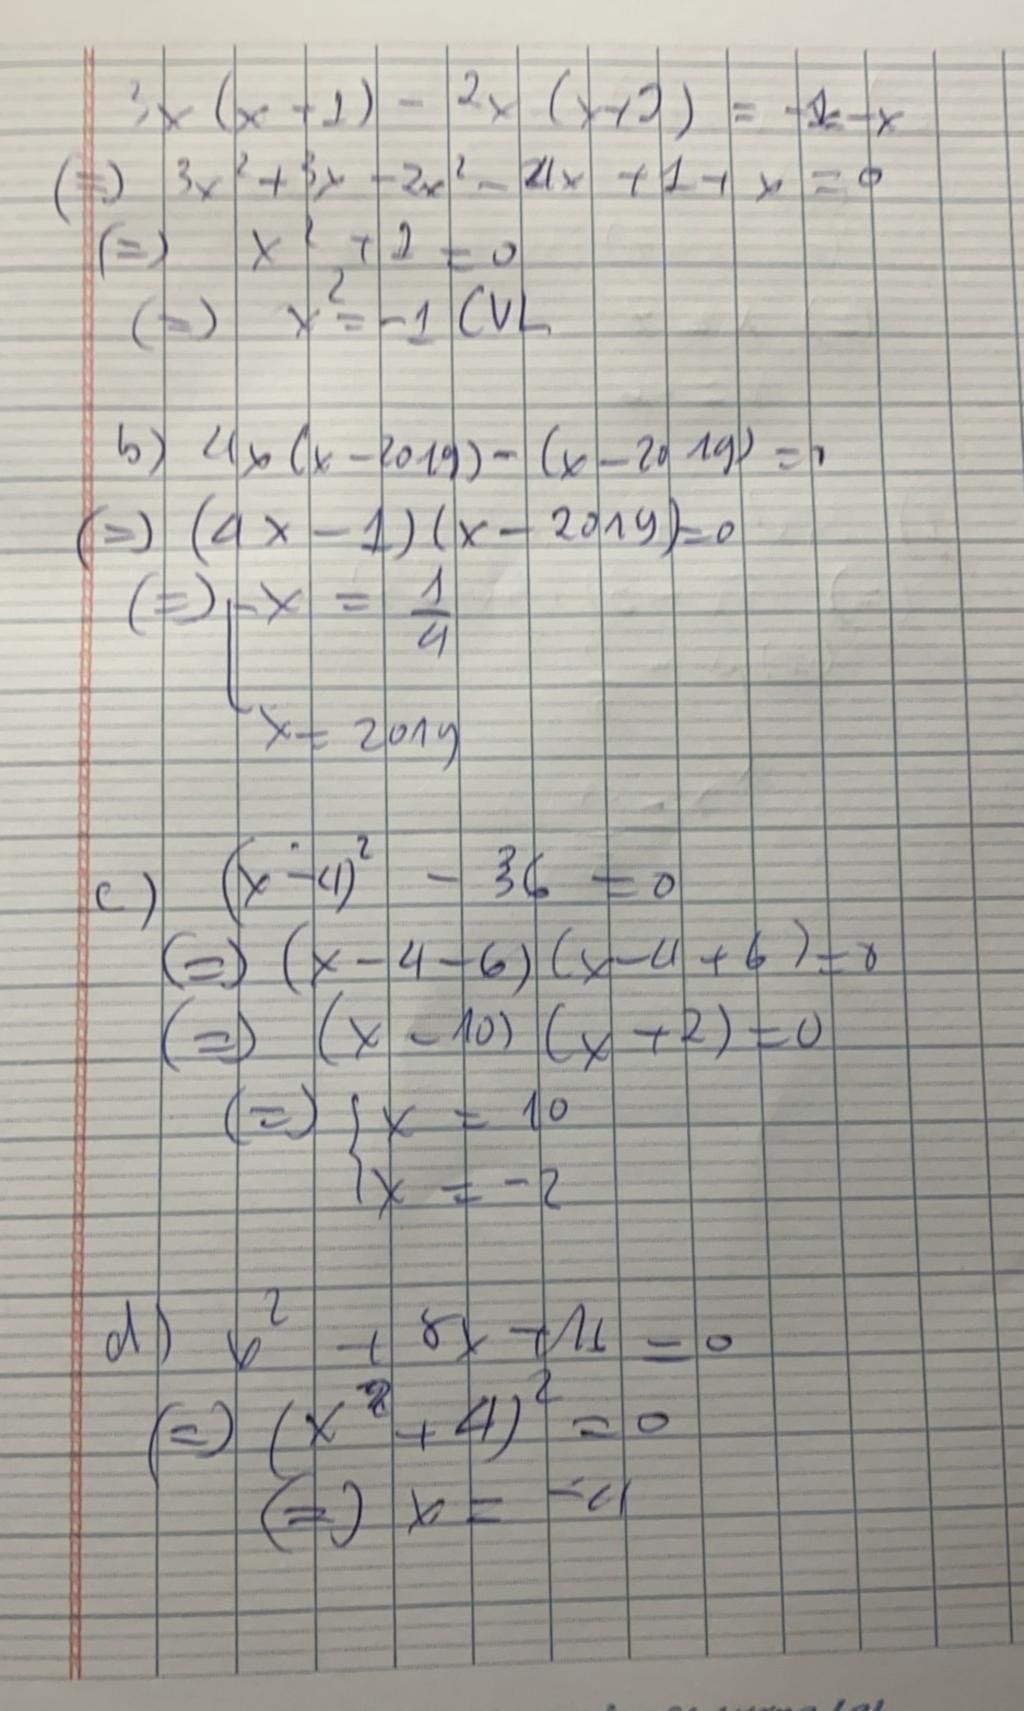 3x (x + 1) - 2x (x+2) = -1 - x
(=) 3x² + 3x - 2x² - 4x + 1 + x = 0
(=) x² + 1 = 0
(=) x² = -1 (VL
b) 4x (x - 2019) - (x - 2019) =
(=) (4x - 1) (x - 2019) = 0
(=) x = 1/4
x = 2019
c) (x - 4)² - 36 = 0
(=) (x - 4 - 6) (x - 4 + 6) = 0
(=) (x - 10) (x + 2) = 0
(=) { x = 10
x = -2
d) x² + 8x + 16 = 0
(=) (x + 4)² = 0
(=) x = -4